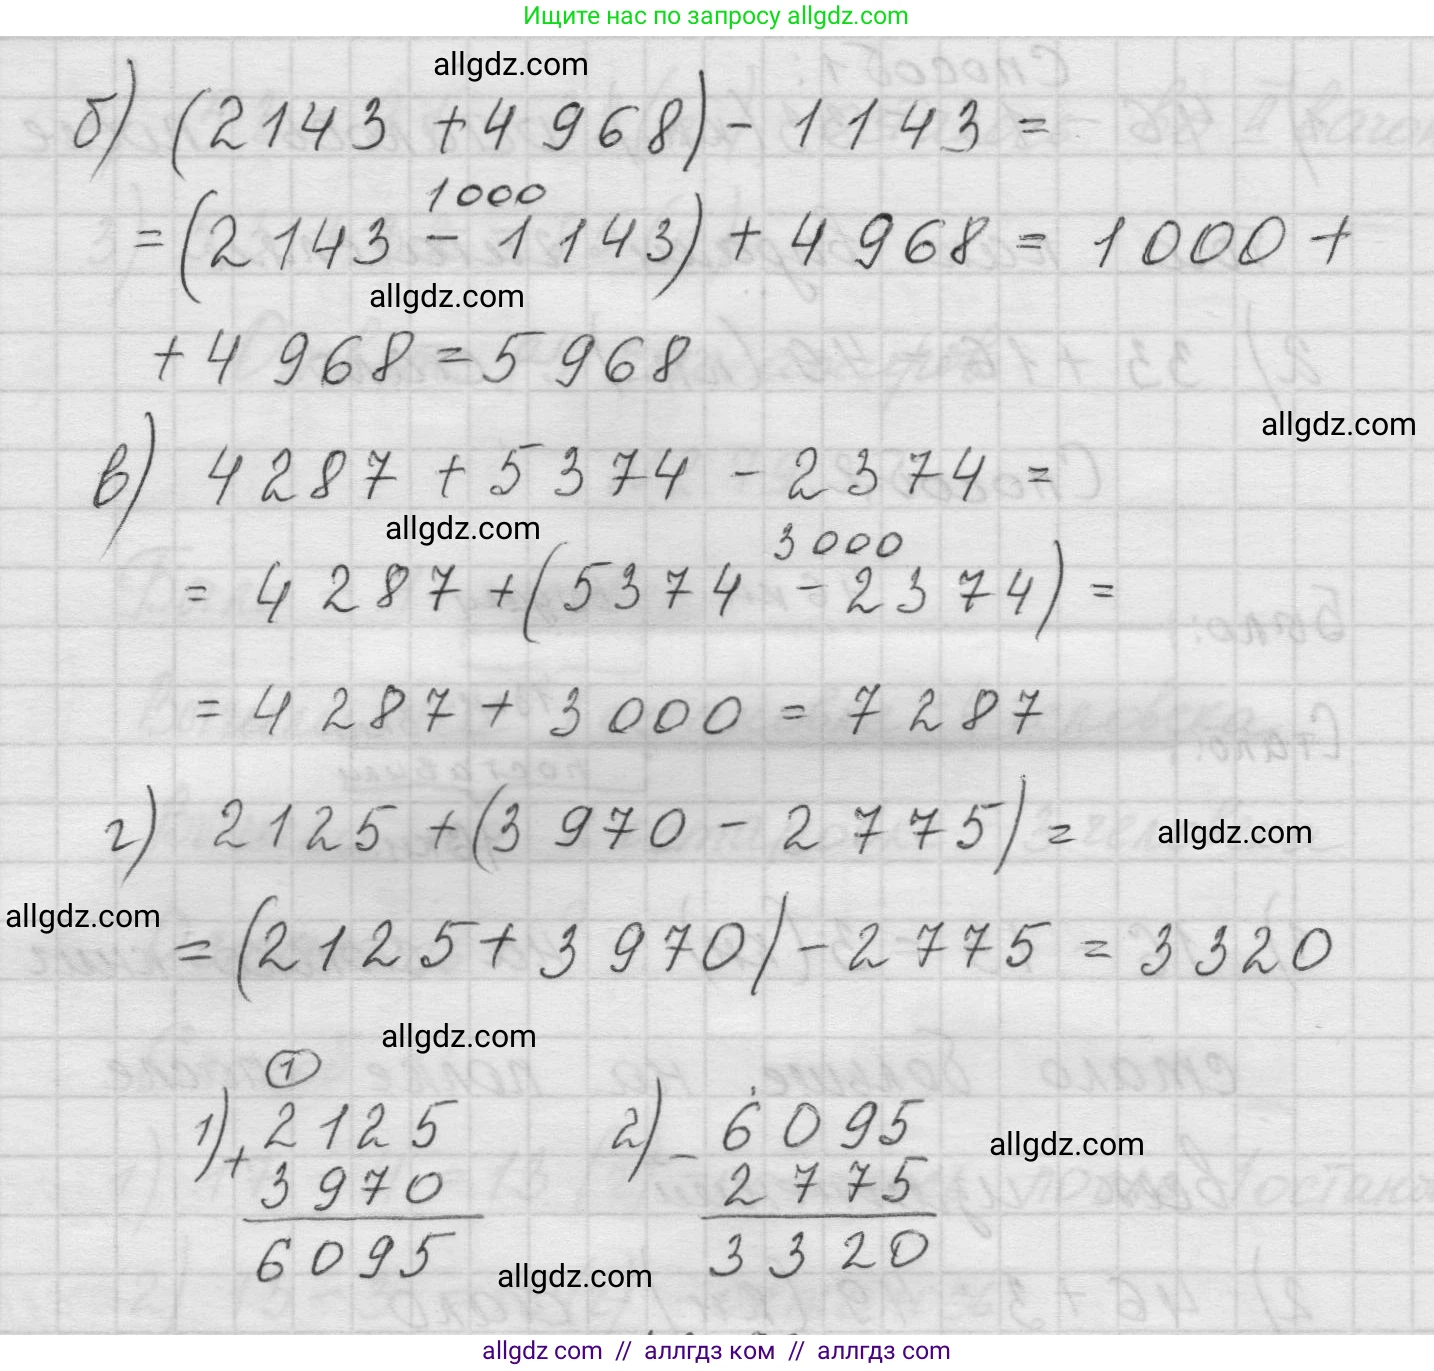 Ищите нас по запросу allgdz.com
allgdz.com
б) (2143 + 4968) - 1143 =
1000
= (2143 - 1143) + 4968 = 1000 +
allgdz.com
+ 4968 = 5968
allgdz.com
в) 4287 + 5374 - 2374 =
allgdz.com
3000
= 4287 + (5374 - 2374) =
= 4287 + 3000 = 7287
г) 2125 + (3970 - 2775) =
allgdz.com
allgdz.com
= (2125 + 3970) - 2775 = 3320
allgdz.com
1
1) + 2125
3970
6095
2) - 6095
2775
3320
allgdz.com
allgdz.com
allgdz.com // аллгдз ком // аллгдз com